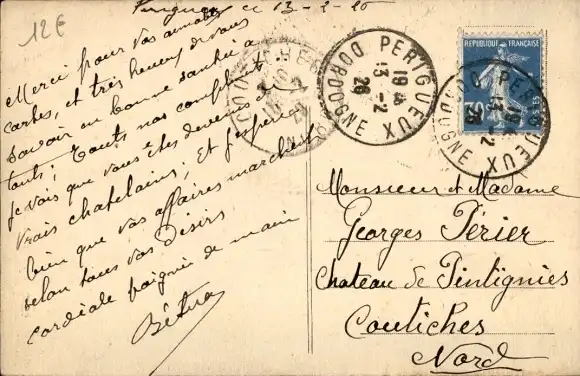 12€
Périgueux ce 13-2-26
Merci pour vos aimables
cartes, et très heureux de vous
savoir en bonne santée a
tous; Touts nos compliments
je vois que vous êtes devenus de
vrais chatelains; Et j'espère
bien que vos affaires marchent
selon tous vos Désirs
cordiale poignée de main
PERIGUEUX
19
13-2
26
DORDOGNE
REPUBLIQUE FRANÇAISE
PERIGUEUX
19
13-2
26
DORDOGNE
Monsieur et Madame
Georges Périer
Chateau de Pintignies
Coutiches
Nord